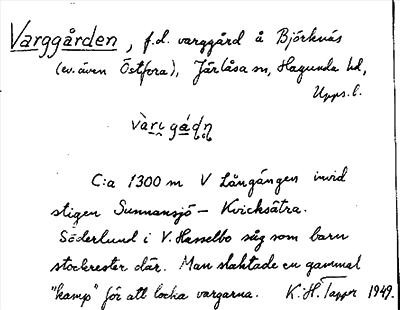 Varggården, f.d. varggård å Björknäs
(ev. även Östfora), Järlåsa sn, Hagunda hd,
Upps. l.
C:a 1300 m V Långängen invid
stigen Sunnansjö – Kvicksätra.
Söderlund i V. Hasselbo såg som barn
stockrester där. Man slaktade en gammal
"kamp" för att locka vargarna. K.H. Tapper 1949.